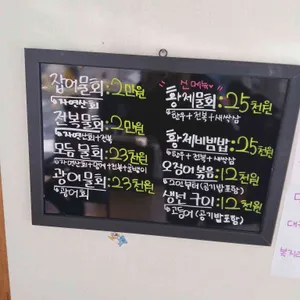 잡어물회:2만원
↳자연산회
전복물회:2만원
↳자연산회+전복
모듬물회:23천원
↳자연산회+문어+전복+골뱅이
광어물회:23천원
↳광어회
신메뉴
황제물회:25천원
↳한우+전복+새싹삼
황제비빔밥:25천원
↳한우+전복+새싹삼
오징어볶음:12천원
↳2인부터(공기밥포함)
생선구이:12천원
↳고등어(공기밥포함)